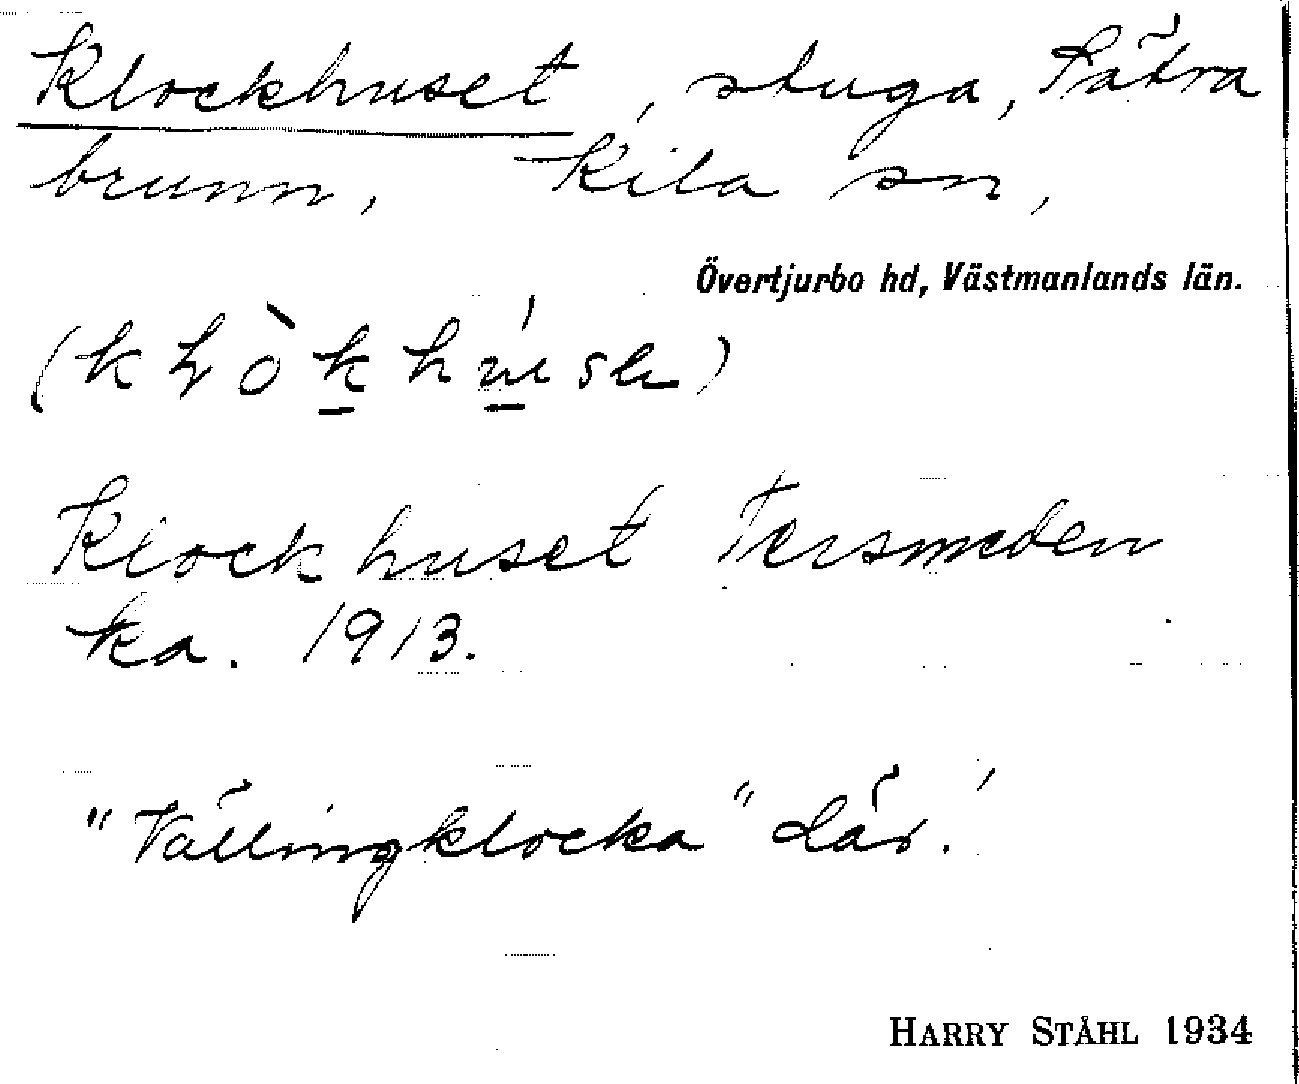 Klockhuset, stuga, Sätra
brunn, Kila sn,
Övertjurbo hd, Västmanlands län.
Klockhuset Tersmeden
ka. 1913.
"Vällingklocka" där.
HARRY STÅHL 1934